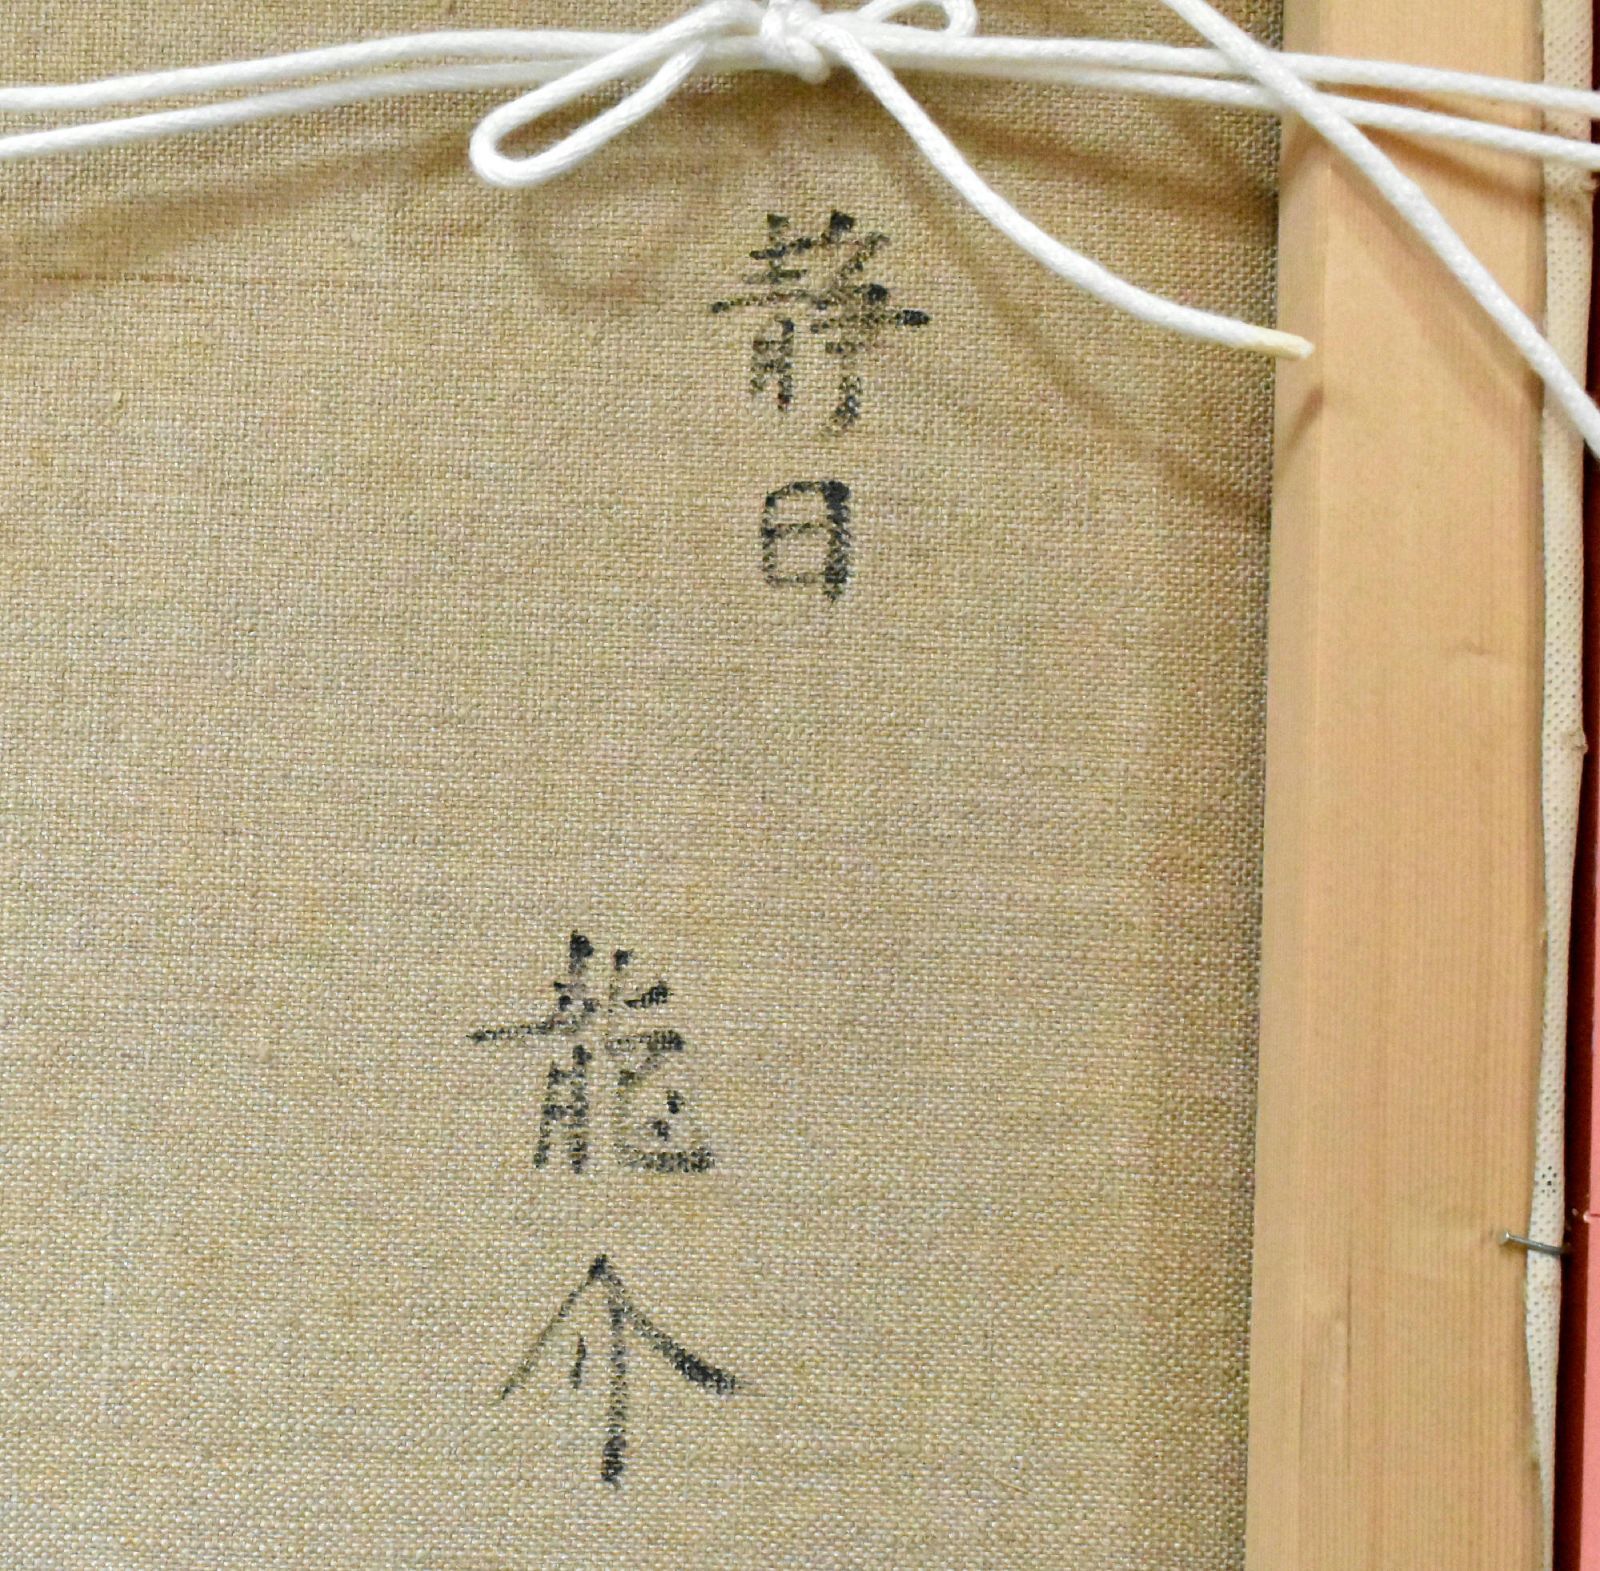 静日
龍介